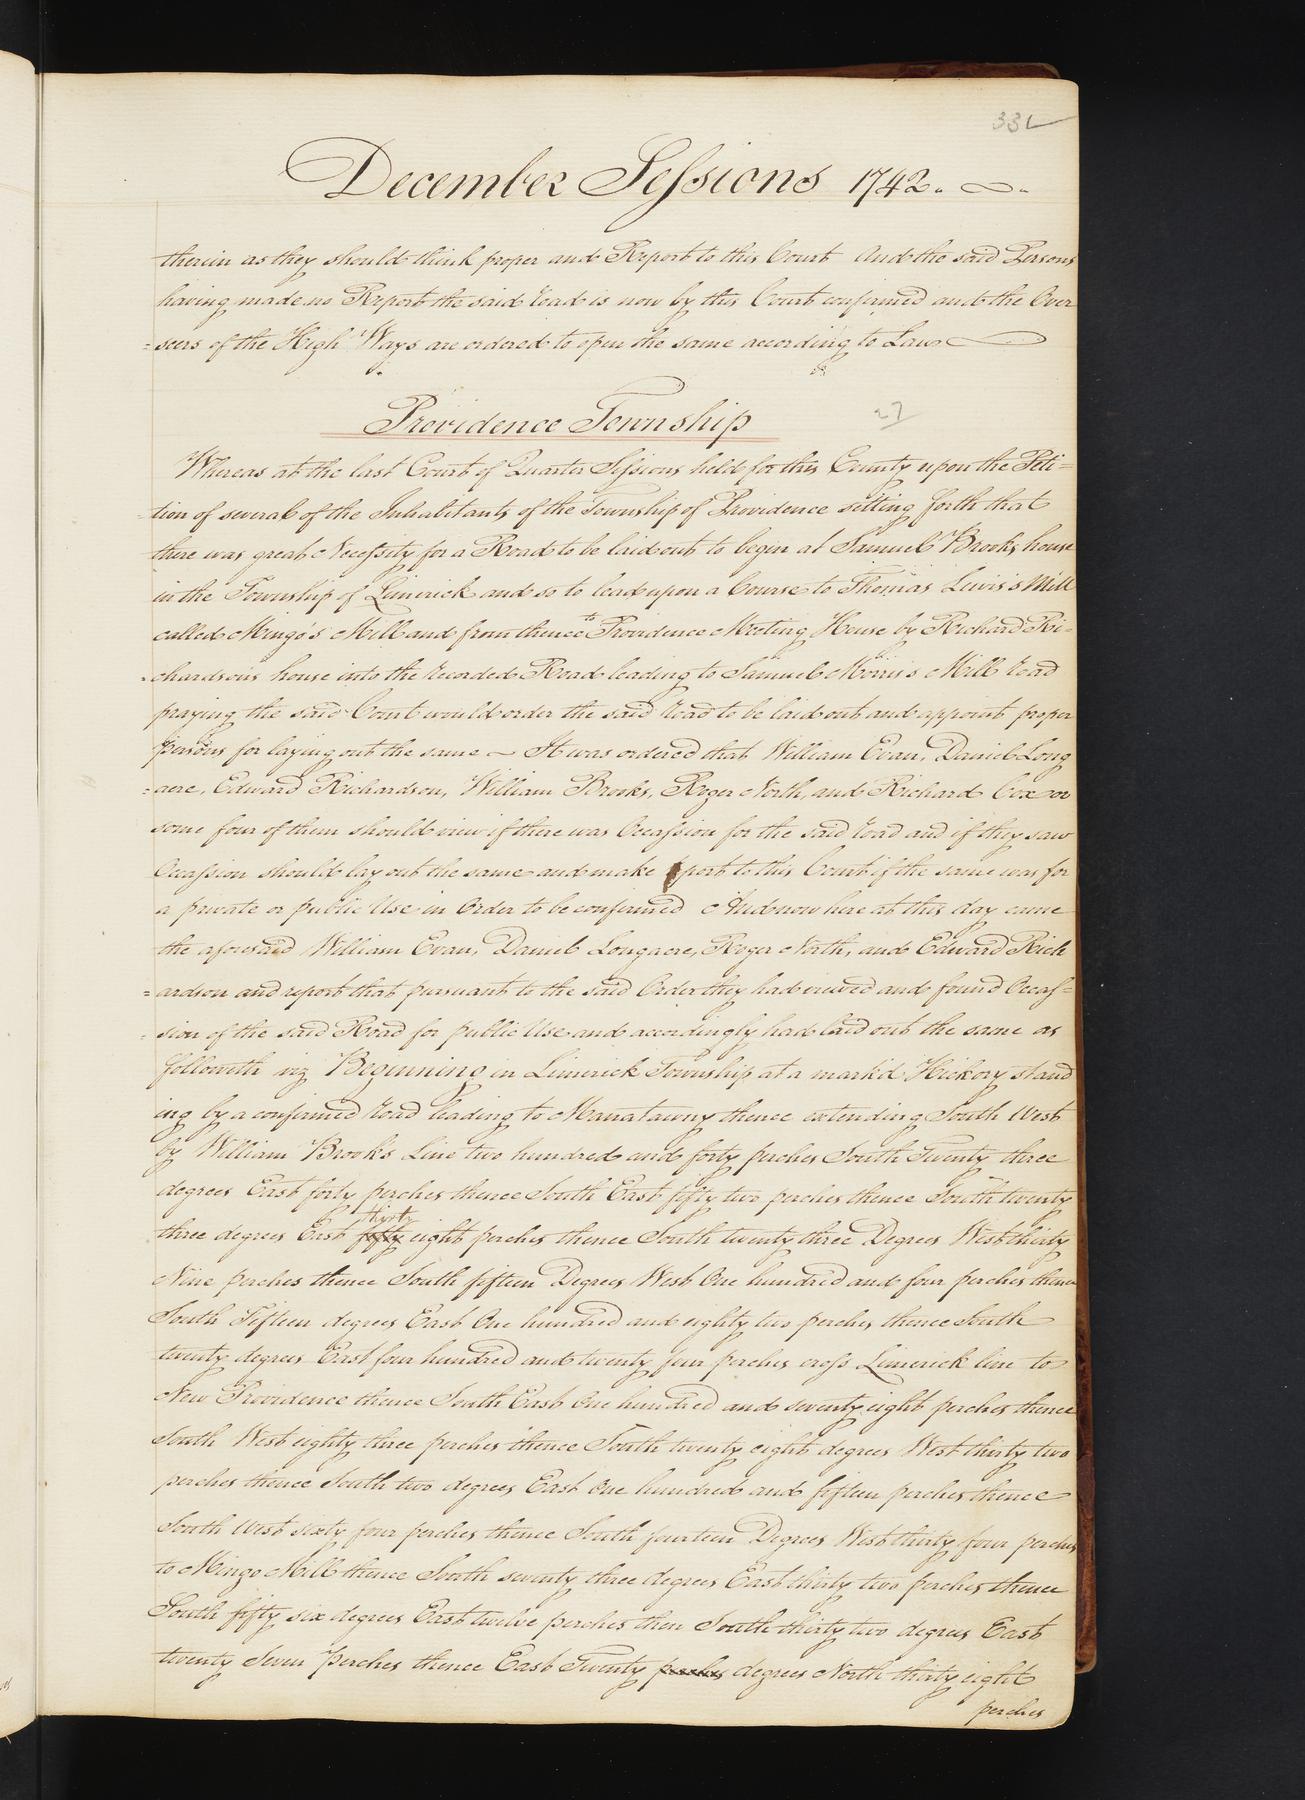 331
December Sessions 1742.
therein as they should think proper and Report to this Court And the said Persons
having made no Report the said road is now by this Court confirmed and the Over
=seers of the High Ways are ordered to open the same according to Law
Providence Township
27
Whereas at the last Court of Quarter Sessions held for this County upon the Peti=
tion of several of the Inhabitants of the Township of Providence setting forth that
there was great Necessity for a Road to be laid out to begin at Samuel Brooks house
in the Township of Limerick and so to lead upon a Course to Thomas Lewis's Mill
called Mingo's Mill and from thence to Providence Meeting House by Richard Ri=
chardson's house into the recorded Road leading to Samuel Morris's Mill road
praying the said Court would order the said road to be laid out and appoint proper
persons for laying out the same It was ordered that William Evan, Daniel Long
=acre, Edward Richardson, William Brooks, Roger North, and Richard Cox or
some four of them should view if there was Occassion for the said road and if they saw
Occassion should lay out the same and make report to this Court if the same was for
a private or public Use in Order to be confirmed And now here at this day came
the aforesaid William Evan, Daniel Longacre, Roger North, and Edward Rich
=ardson and report that pursuant to the said Order they had viewed and found Occas=
sion of the said Road for public Use and accordingly had laid out the same as
followeth viz Beginning in Limerick Township at a mark'd Hickory stand
ing by a confirmed road leading to Manatawny thence extending South West
by William Brook's Line two hundred and forty perches South Twenty three
degrees East forty perches thence South East fifty two perches thence South twenty
three degrees East fifty thirty eight perches thence South twenty three Degrees West thirty
Nine perches thence South fifteen Degrees West One hundred and four perches thence
South Fifteen degrees East One hundred and eighty two perches thence South
twenty degrees East four hundred and twenty four perches cross Limerick line to
New Providence thence South East One hundred and seventy eight perches thence
South West eighty three perches thence South twenty eight degrees West thirty two
perches thence South two degrees East One hundred and fifteen perches thence
South West sixty four perches thence South fourteen Degrees West thirty four perches
to Mingo Mill thence South seventy three degrees East thirty two perches thence
South fifty six degrees East twelve perches then South thirty two degrees East
twenty Seven Perches thence East Twenty perches degrees North thirty eight
perches